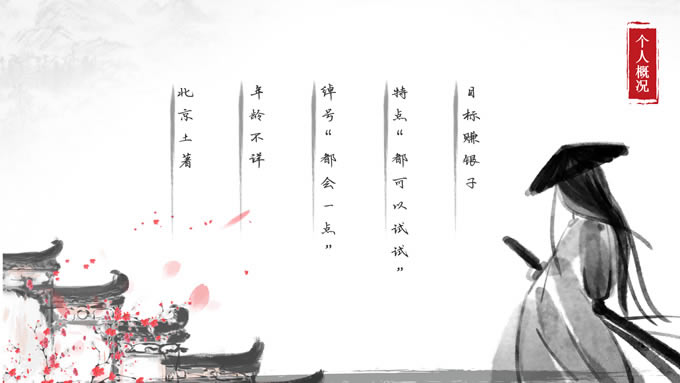 个人概况
目标赚银子
特点“都可以试试”
绰号“都会一点”
年龄不详
北京土著